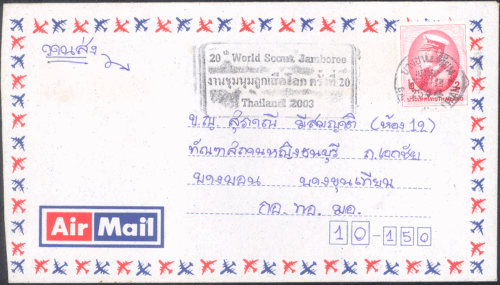 กรุณาส่ง
20th World Scout Jamboree
งานชุมนุมลูกเสือโลก ครั้งที่ 20
Thailand 2003
ประเทศไทย
ข.ญ. สุภาณี มีสมญาติ (ห้อง 12)
ทัณฑสถานหญิงธนบุรี ถ.เอกชัย
บางบอน บางขุนเทียน
กอ. ทอ. มอ.
10-150
Air Mail